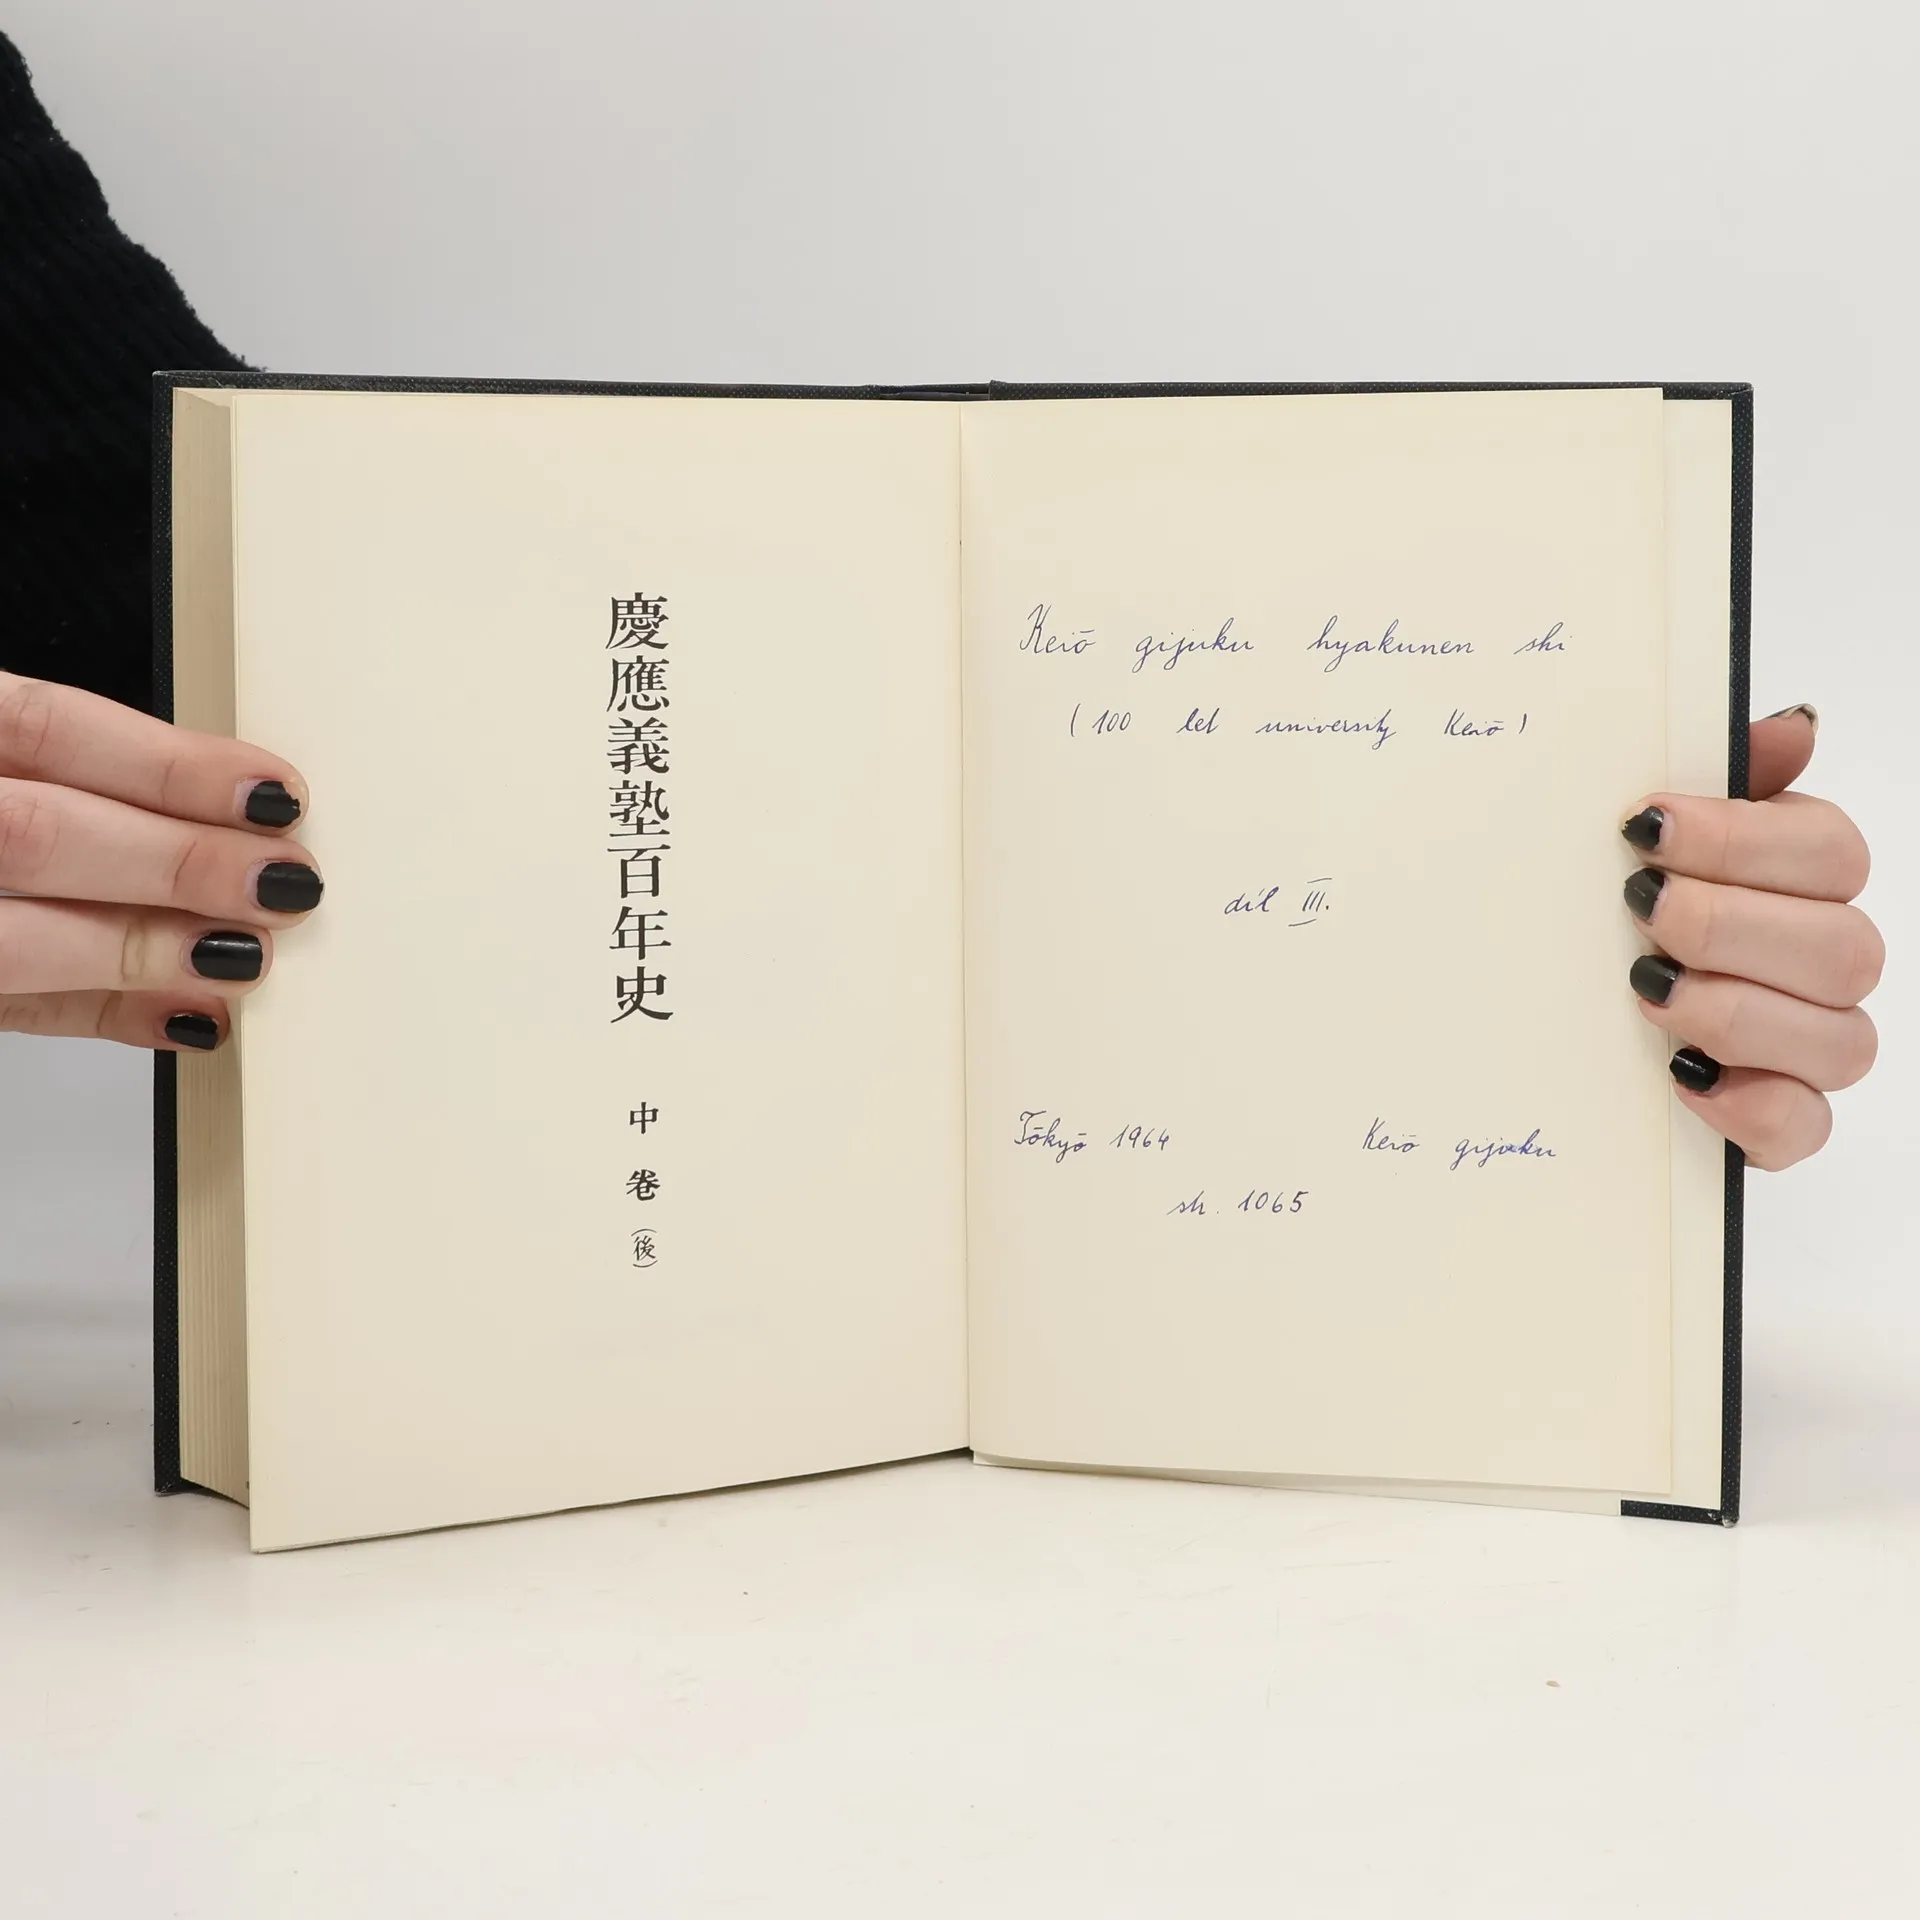 慶應義塾百年史
中卷
(後)
Keiō gijuku hyakunen shi
(100 let university Keiō)
díl III.
Tōkyō 1964 Keiō gijuku
str. 1065